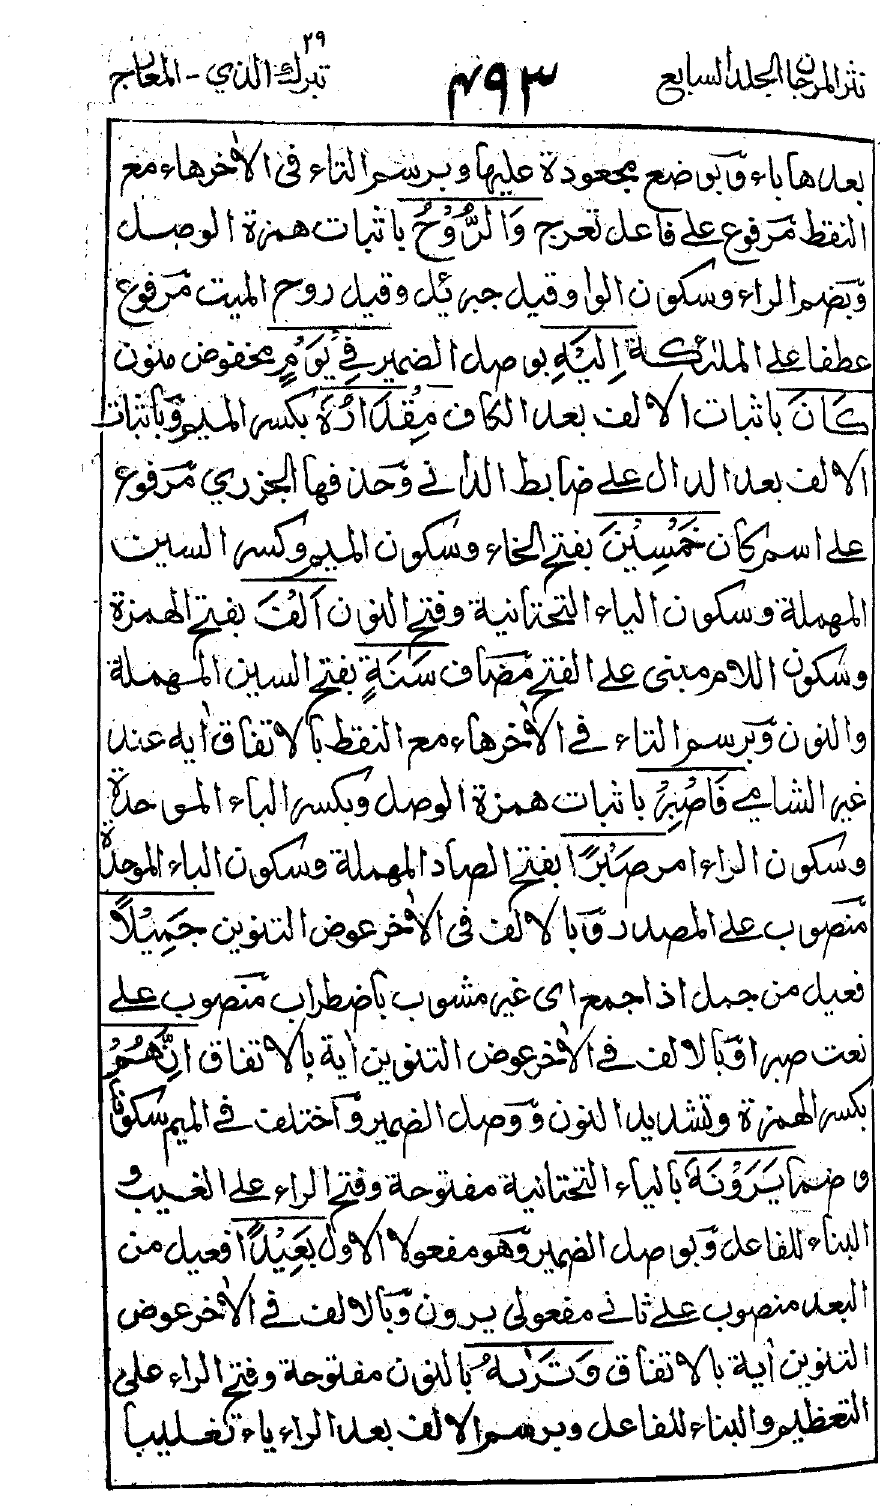 نثر المرجان الجلد السابع
٤٩٣
٢٩
تبرك الذي - المعارج
بعدها باء وَبوضع مجعودة عليها وبرسم التاء فى الاٰخرهاء مع
النقط مَرفوع على فاعل تعرج وَالرُّوْحُ باثبات همزة الوصل
وَبضم الراء وسكون الواو قيل جبرئيل وقيل روح الميت مَرفوع
عطفا على الملٰئكة اِلَيْهِ بوصل الضمير فِيْ يَوْمٍ مخفوض منون
كَانَ باثبات الالف بعد الكاف مِقْدَارُهٗ بكسر الميم وَباثبات
الالف بعد الدال على ضابط الدانى وَحذفها الجزري مَرفوع
على اسم كان خَمْسِيْنَ بفتح الخاء وسكون الميم وكسر السين
المهملة وسكون الياء التحتانية وفتح النون اَلْفَ بفتح الهمزة
وسكون اللام مبنى على الفتح مَضاف سَنَةٍ بفتح السين المهملة
والنون وَبرسم التاء فى الاٰخرهاء مع النقط بالاتفاق اٰية عند
غير الشامي فَاصْبِرْ باثبات همزة الوصل وبكسر الباء الموحدة
وسكون الراء امر صَبْرًا بفتح الصاد المهملة وسكون الباء الموحدة
مَنصوب على المصدر وَبالالف فى الاٰخر عوض التنوين جَمِيْلًا
فعيل من جمل اذا جمع اى غير مشوب باضطراب مَنصوب على
نعت صبرا وَبالالف فى الاٰخر عوض التنوين اٰية بالاتفاق اِنَّهُمْ
بكسر الهمزة وتشديد النون وَوصل الضمير وَاختلف فى الميم سكونا
وضما يَرَوْنَهٗ بالياء التحتانية مفتوحة وفتح الراء على الغيب و
البناء للفاعل وَبوصل الضمير وَهو مفعولا الاول بَعِيْدًا فعيل من
البعد منصوب على ثانى مفعولى يرون وَبالالف فى الاٰخر عوض
التنوين اٰية بالاتفاق وَنَرٰىهُ بالنون مفتوحة وفتح الراء على
التعظيم والبناء للفاعل وبرسم الالف بعد الراء ياء تغليبا